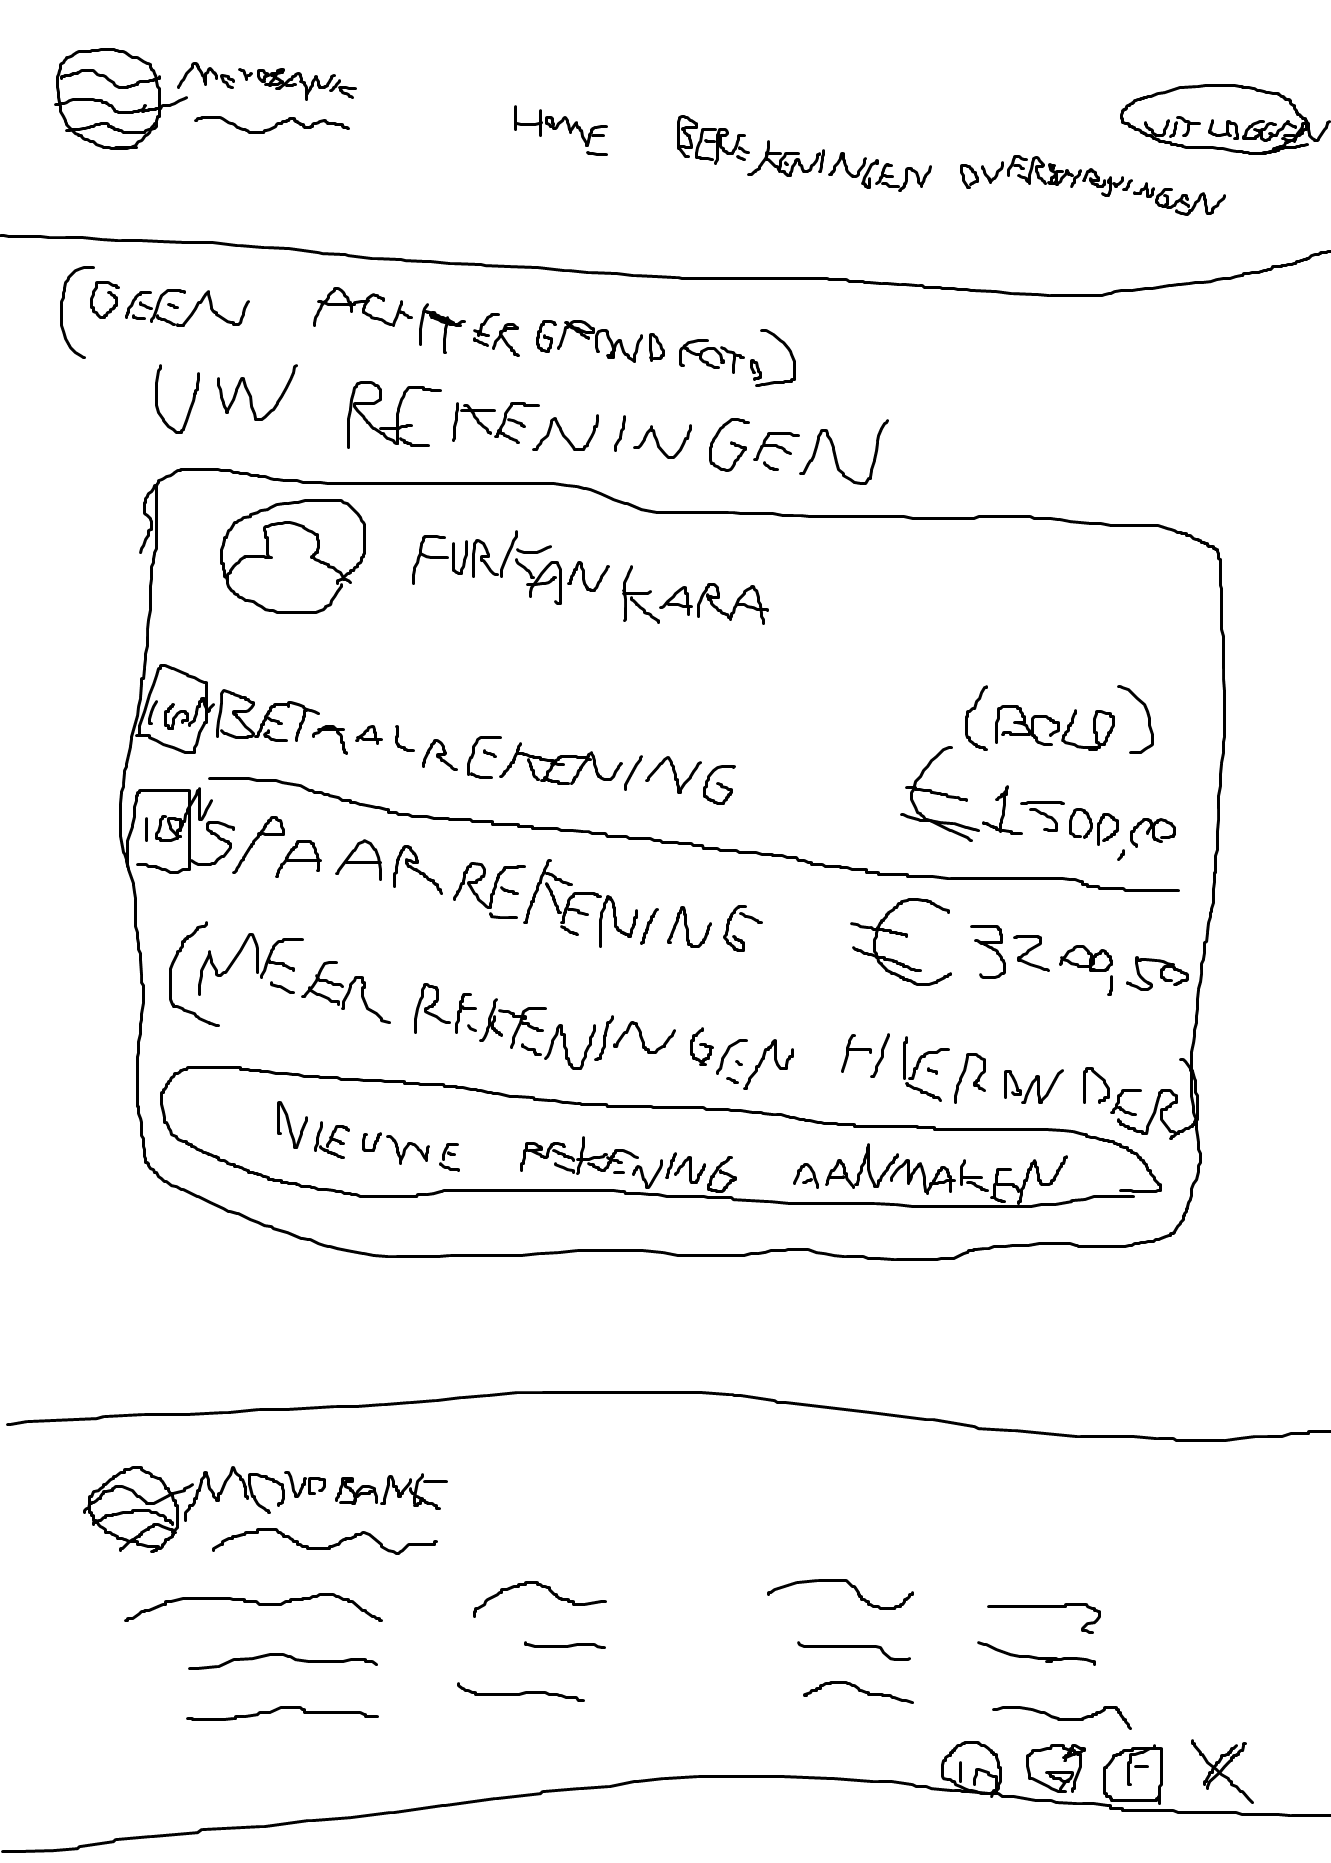 MOVOBANK
HOME BEREKENINGEN UITLOGGEN
(GEEN ACHTERGROND FOTO)
UW REKENINGEN
FURKAN KARA
BETAALREKENING (BOLD)
€1500,00
SPAARREKENING €3200,50
(MEER REKENINGEN HIERONDER)
NIEUWE REKENING AANMAKEN
MOVOBANK
in F X